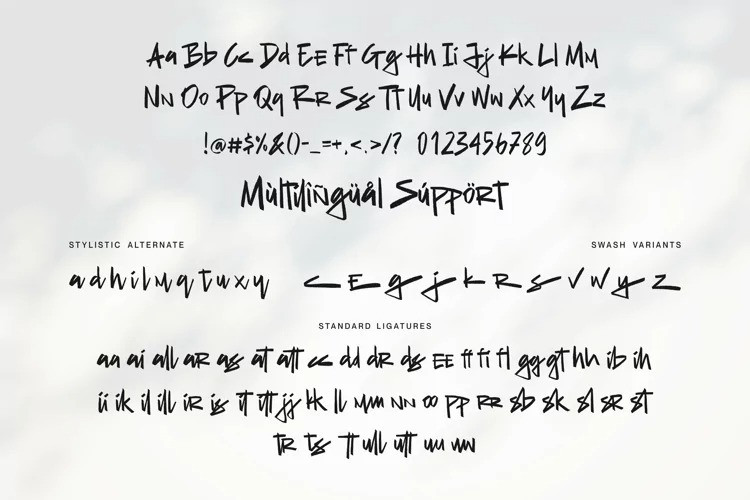 Aa Bb Cc Dd Ee Ff Gg Hh Ii Jj Kk Ll Mm
Nn Oo Pp Qq Rr Ss Tt Uu Vv Ww Xx Yy Zz
!@#$%&()-_=+,<.>/? 0123456789
Mùltilîñgüål Súppört
STYLISTIC ALTERNATE
SWASH VARIANTS
a d h i l m q t u x y
c e g j k r s v w y z
STANDARD LIGATURES
aa ai all ar as at att cc dd dr ds ee ff fi fl gg gt hh ib ih
ii ik il ill ir is it itt jj kk ll mm nn oo pp rr sb sk sl sr st
tr ts tt ull utt uu